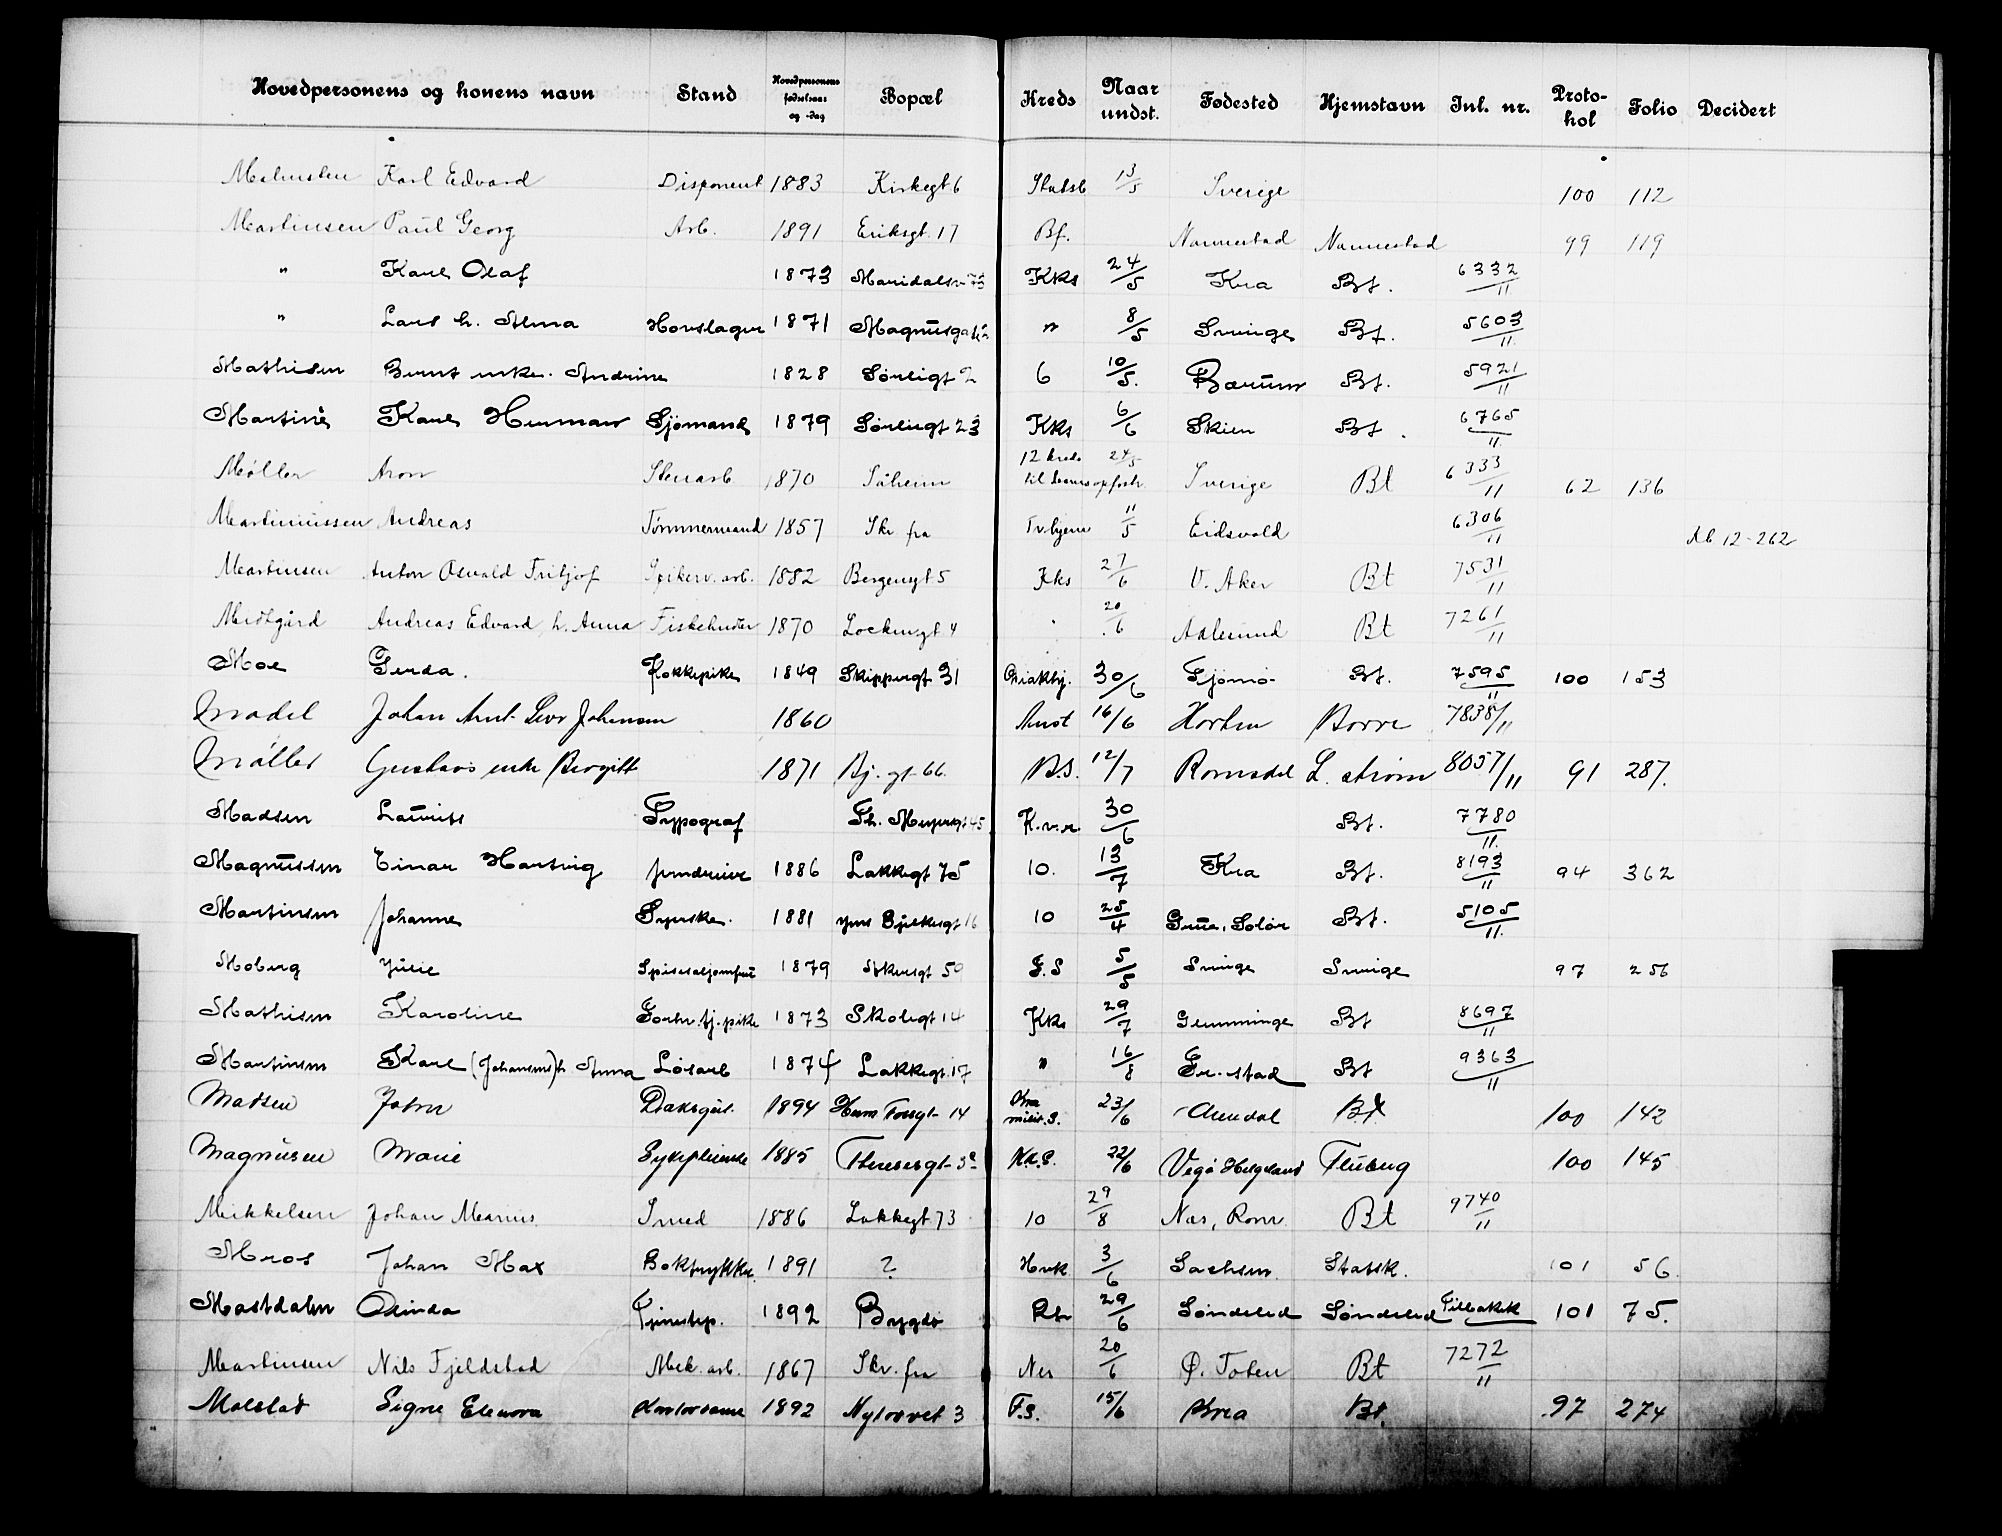 Hovedpersonens og konens navn Stand Hovedpersonens fødselsaar og -dag Bopæl Kreds Naar undst. Fødested Hjemstavn Inl. nr. Protokol Folio Decidert
Malmsten Karl Edvard Disponent 1883 Kirkegt 6 Statsb 13/5 Sverige 100 112
Martinsen Paul Georg Arb. 1891 Eriksgt. 17 Bf. Nannestad Nannestad 99 119
" Karl Olaf 1873 Maridalsv 73 Kks 24/5 Kra Bt. 6332/11
" Lars h. Alma Hovslager 1871 " 8/5 Sverige Bt. 5603/11
Mathisen Bernt enke. Andrine 1828 Sørligt 2 6 10/5. Bærum Bt. 5921/11
Karl Herman Sjømand 1879 Sørligt 23 Kks 6/6 Skien Bt. 6765/11
Møller Aron Stenarb 1870 Såheim 12 kreds 24/5 Sverige Bt 6333/11 62 136
Martiniussen Andreas Tømmermand 1857 Skr fra Tvhjem 11/5 Eidsvold 6306/11 Ab 12-262
Martinsen Anton Osvald Fritjof Spikerv. arb. 1882 Bergensgt 5 Kks 27/6 V. Aker Bt 7531/11
Midtgård Andreas Edvard, h. Anna 1870 20/6 Aalesund Bt 7261/11
Moe Gerda. Kokkepike 1849 Skippergt 31 30/6 Bt. 7595/11 100 153
Johan Ant. 1860 16/6 Horten Borre 7838/11
Møller Gustavs enke Birgitt 1871 Bj. gt. 66. B.S. 12/7 Romsdal L. strøm 8057/11 91 287.
Madsen Laurits Typograf Th. Meyersgt 45 K.v.r 30/6 Bt. 7780/11
Magnussen Einar Hartvig 1886 Lakkegt 75 10. 13/7 Kra Bt. 8193/11 94 362
Martinsen Johanne Syerske. 1881 Jens Bjelkesgt 16 10 25/4 Grue, Solør Bt. 5105/11
Moberg Julie 1879 Akersgt 50 F.S 5/5 Sverige Sverige 97 256
Mathisen Karoline Forhv. tj. pike 1873 Skolegt 14 Kks 29/7 Bt 8697/11
Martinsen Karl (Johansens) h Anna Løsarb 1874 Lakkegt. 17 " 16/8 Fr. stad Bt 9363/11
Madsen John Daksgut. 1894 14 Kra milit. S. 23/6 Arendal Bt. 100 142
Magnusen Marie Sykepleierske 1885 Theresesgt- 22/6 Vegø Helgeland Fluberg 100 145
Mikkelsen Johan Marius Smed 1886 Lakkegt 73 10 29/8 Nes, Rom. Bt 9740/11
Mros Johan Max Boktrykker. 1891 ? 3/6 Sachsen Statsk. 101 56.
Mostdalen Olinda Tjenestep. 1892 Bygdø 29/6 Søndeled Søndeled Tilbakek 101 75.
Martinsen Nils Fjeldstad Mek. arb. 1867 Skr. fra Nes 20/6 Ø. Toten Bt 7272/11
Molstad Signe Eleonora Kontordame 1892 Nytorvet 3 F.S. 15/6 Kra Bt. 97 274